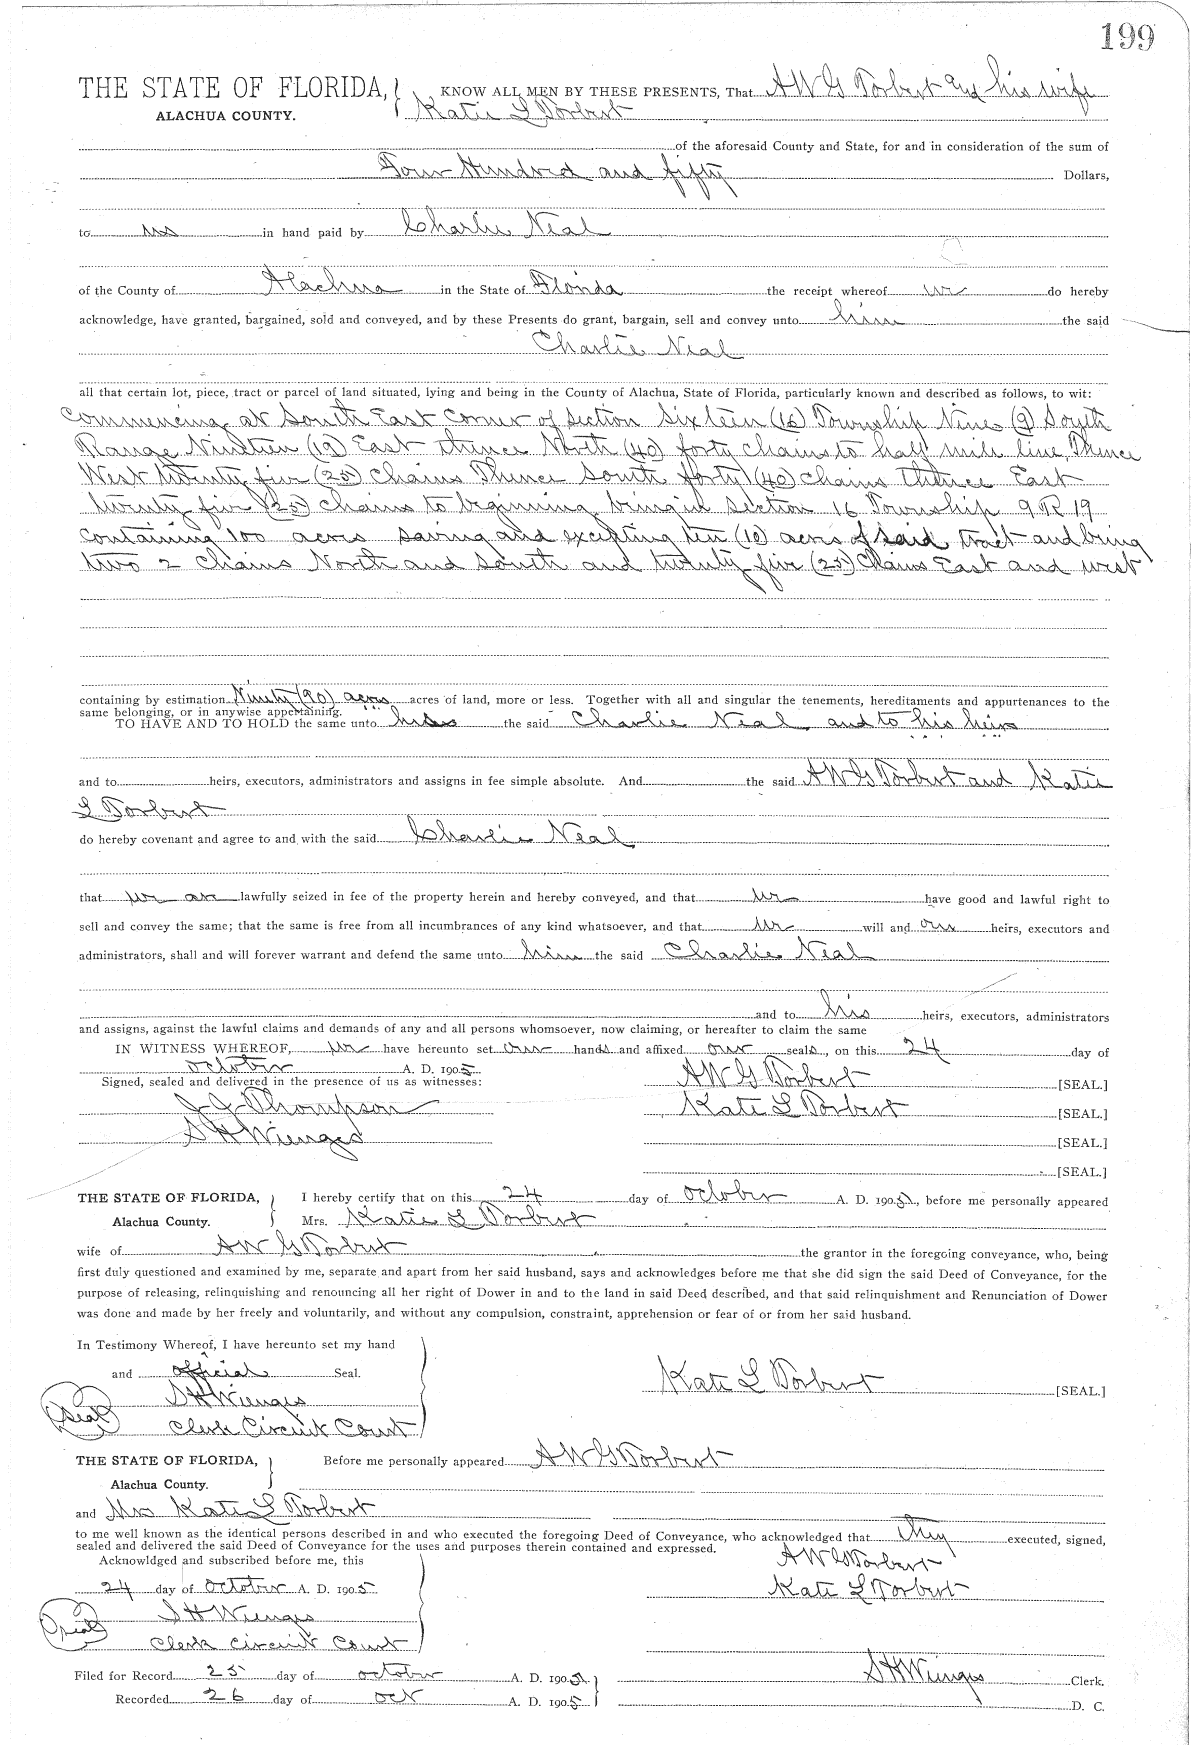 199
THE STATE OF FLORIDA, KNOW ALL MEN BY THESE PRESENTS, That A W G Torbert and his wife
ALACHUA COUNTY. Katie L Torbert
of the aforesaid County and State, for and in consideration of the sum of
Four Hundred and fifty Dollars,
to us in hand paid by Charlie Neal
of the County of Alachua in the State of Florida the receipt whereof we do hereby
acknowledge, have granted, bargained, sold and conveyed, and by these Presents do grant, bargain, sell and convey unto him the said
Charlie Neal
all that certain lot, piece, tract or parcel of land situated, lying and being in the County of Alachua, State of Florida, particularly known and described as follows, to wit:
Commencing at South East Corner of Section Sixteen (16) Township Nine (9) South
Range Nineteen (19) East thence North (40) forty chains to half mile line, Thence
West twenty five (25) chains Thence South forty (40) chains thence East
twenty five (25) chains to beginning being in section 16 Township 9 R 19
containing 100 acres saving and excepting ten (10) acres of said tract and being
two 2 chains North and South and twenty five (25) chains East and west
containing by estimation Ninety (90) acres acres of land, more or less. Together with all and singular the tenements, hereditaments and appurtenances to the
same belonging, or in anywise appertaining.
TO HAVE AND TO HOLD the same unto the said Charlie Neal and to his heirs
and to heirs, executors, administrators and assigns in fee simple absolute. And the said A W G Torbert and Katie
L Torbert
do hereby covenant and agree to and with the said Charlie Neal
that we are lawfully seized in fee of the property herein and hereby conveyed, and that we have good and lawful right to
sell and convey the same; that the same is free from all incumbrances of any kind whatsoever, and that we will and our heirs, executors and
administrators, shall and will forever warrant and defend the same unto him the said Charlie Neal
and to his heirs, executors, administrators
and assigns, against the lawful claims and demands of any and all persons whomsoever, now claiming, or hereafter to claim the same
IN WITNESS WHEREOF, we have hereunto set our hands and affixed our seals, on this 24 day of
October A. D. 1905 A W G Torbert [SEAL.]
Signed, sealed and delivered in the presence of us as witnesses:
J J Thompson Kate L Torbert [SEAL.]
S H Wienges [SEAL.]
[SEAL.]
THE STATE OF FLORIDA, I hereby certify that on this 24 day of October A. D. 1905, before me personally appeared
Alachua County. Mrs. Katie L Torbert
wife of A W G Torbert the grantor in the foregoing conveyance, who, being
first duly questioned and examined by me, separate and apart from her said husband, says and acknowledges before me that she did sign the said Deed of Conveyance, for the
purpose of releasing, relinquishing and renouncing all her right of Dower in and to the land in said Deed described, and that said relinquishment and Renunciation of Dower
was done and made by her freely and voluntarily, and without any compulsion, constraint, apprehension or fear of or from her said husband.
In Testimony Whereof, I have hereunto set my hand
and official Seal. Kate L Torbert [SEAL.]
Seal S H Wienges
Clerk Circuit Court
THE STATE OF FLORIDA, Before me personally appeared A W G Torbert
Alachua County.
and Mrs Kate L Torbert
to me well known as the identical persons described in and who executed the foregoing Deed of Conveyance, who acknowledged that they executed, signed,
sealed and delivered the said Deed of Conveyance for the uses and purposes therein contained and expressed.
Acknowldged and subscribed before me, this A W G Torbert
24 day of October A. D. 1905 Kate L Torbert
Seal S H Wienges
Clerk Circuit Court
Filed for Record 25 day of October A. D. 1905 S H Wienges Clerk.
Recorded 26 day of Oct A. D. 1905 D. C.